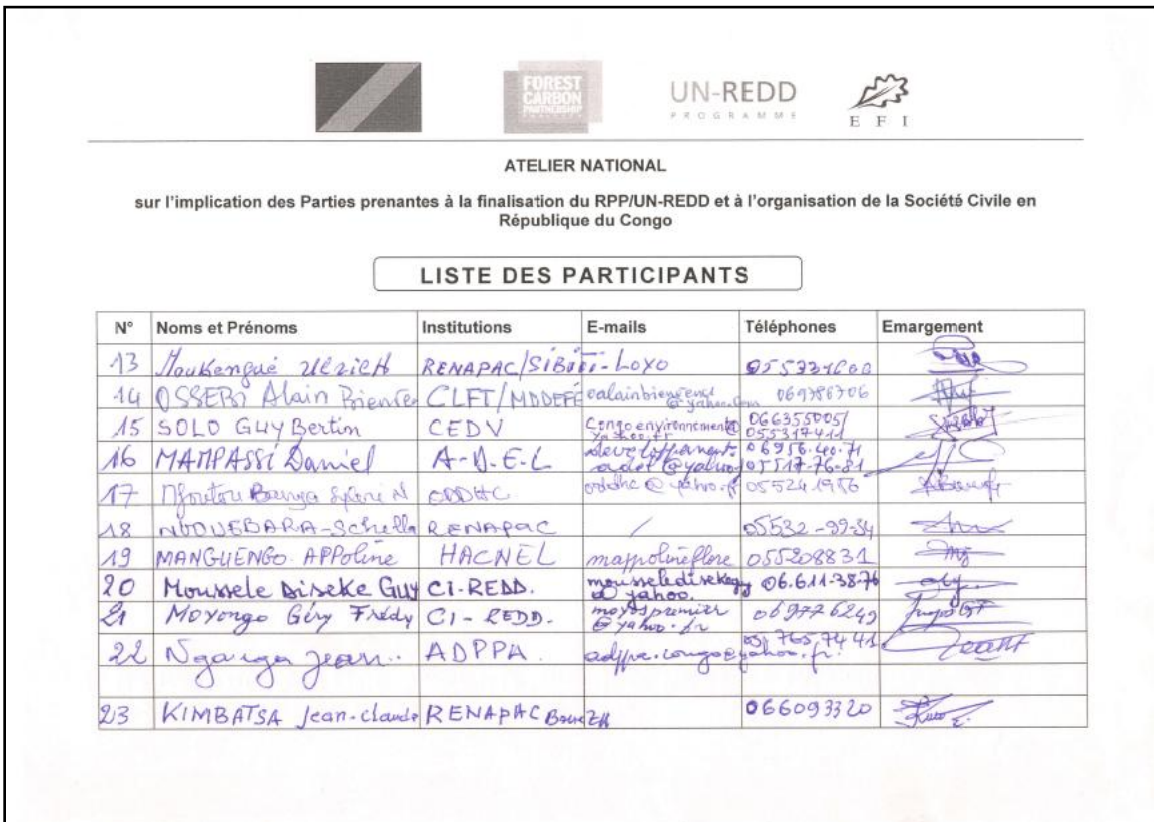 FOREST
CARBON
PARTNERSHIP
UN-REDD
PROGRAMME
EFI
ATELIER NATIONAL
sur l'implication des Parties prenantes à la finalisation du RPP/UN-REDD et à l'organisation de la Société Civile en
République du Congo
LISTE DES PARTICIPANTS
N° Noms et Prénoms Institutions E-mails Téléphones Emargement
13 Moukengué Ulrich RENAPAC/SIBITI-LOXO
14 OSSEBI Alain CLFT/MDDEFE 069386706
15 SOLO GUY Bertin CEDV Congoenvironnement@ 066355005/
yahoo.fr 055317411
16 MAMPASSI Daniel A-D.E.L 06956.40.71
05517-76-81
17 ODDHC oddhc@yahoo.fr 055241956
18 RENAPAC / 05532-99-34
19 MANGUENGO APPoline HACNEL mappolineflore 055208831
20 Moussele Diseke Guy CI-REDD. mousseledisekegy 06.611-38-76
@yahoo.
21 Moyongo Géry Frédy CI-REDD. moyospremier 069776249
@yahoo.fr
22 Nganga Jean ADPPA adppa.congo@yahoo.fr.
23 KIMBATSA Jean-claude RENAPAC 066093320